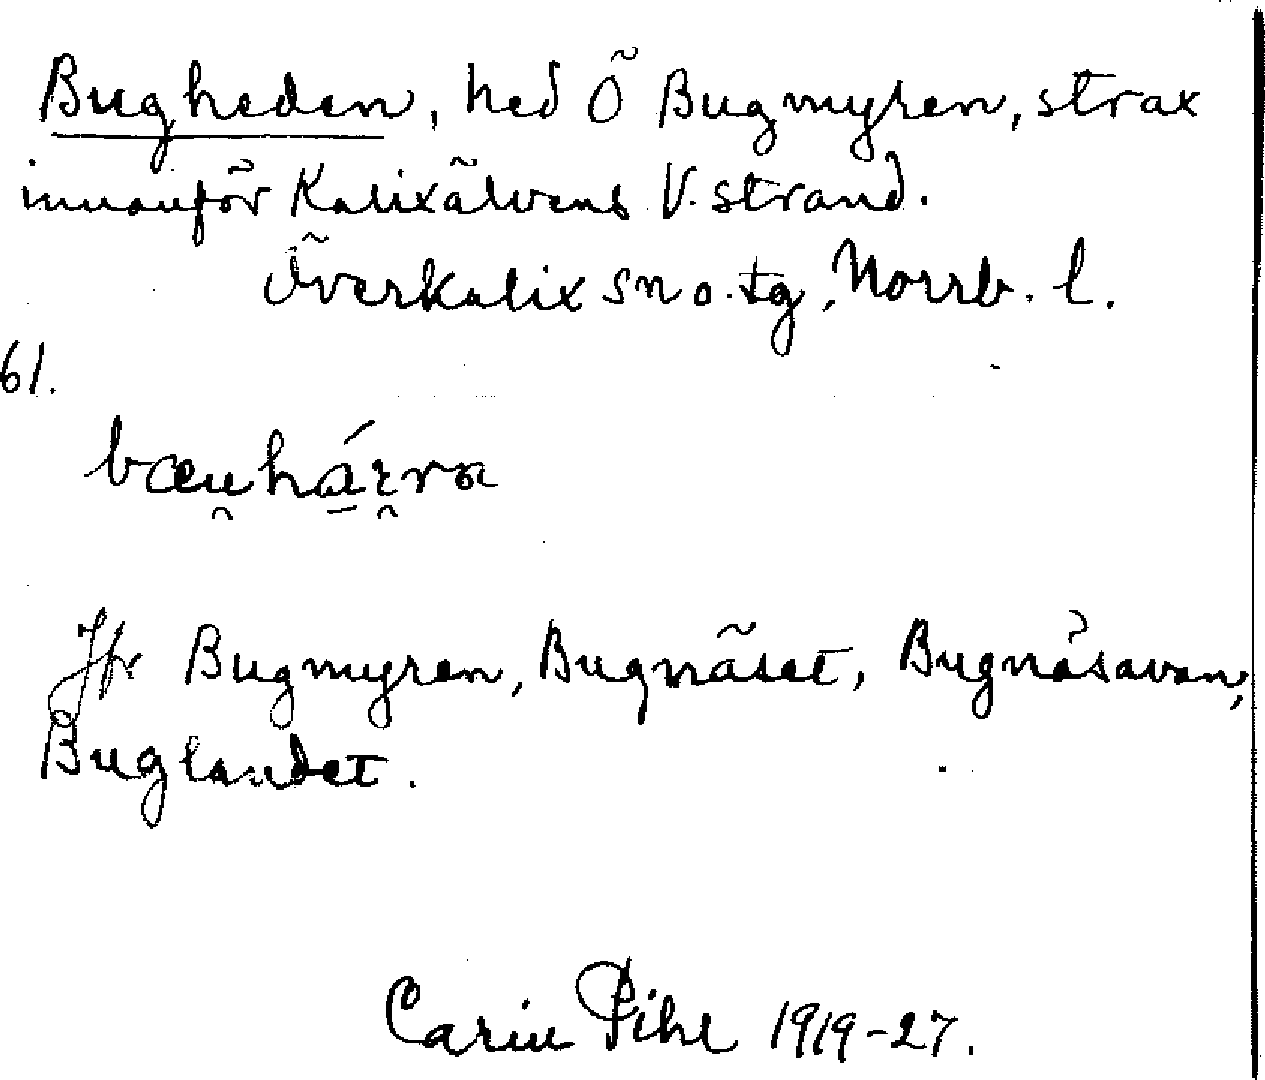 Bugheden, hed Ö Bugmyren, strax
innanför Kalixälvens V. strand.
Överkalix sn o. tg, Norrb. l.
61.
Jfr Bugmyren, Bugnäset, Bugnäsavan,
Buglandet.
Carin Pihl 1919-27.